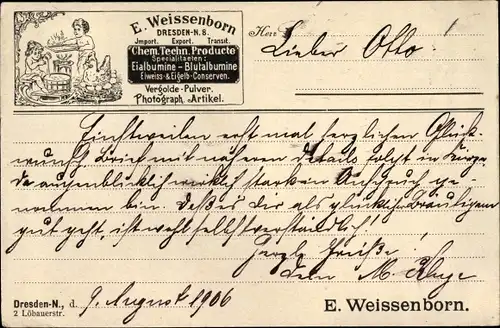 E. Weissenborn
DRESDEN-N. 8.
Import. Export. Transit.
Chem. Techn. Producte
Specialitaeten:
Eialbumine - Blutalbumine
Eiweiss- & Eigelb-Conserven.
Vergolde-Pulver.
Photograph. Artikel.
Herr
Lieber Otto!
Einstweilen erst mal herzlichen Glück-
wunsch, Brief mit näheren Details folgt in Kürze,
da augenblicklich wirklich stark in Anspruch ge-
nommen bin. Daß es dir als glücklicher Bräutigam
gut geht, ist wohl selbstverständlich!
Herzl. Grüße!
dein M. Kluge
Dresden-N., d. 9. August 1906
2 Löbauerstr.
E. Weissenborn.